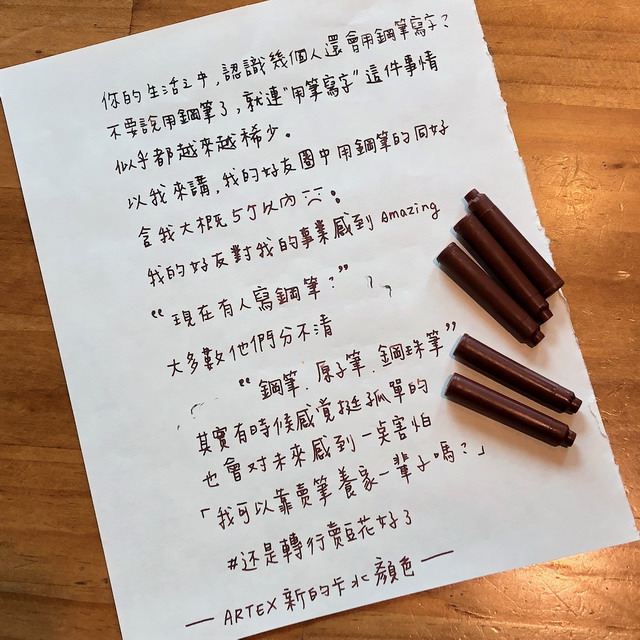 你的生活之中，認識幾個人還會用鋼筆寫字？
不要說用鋼筆了，就連"用筆寫字"這件事情
似乎都越來越稀少。
以我來講，我的好友圈中用鋼筆的同好
含我大概5个以內
我的好友對我的事業感到 Amazing
"現在有人寫鋼筆？"
大多數他們分不清
"鋼筆、原子筆、鋼珠筆"
其實有時候感覺挺孤單的
也會對未來感到一点害怕
「我可以靠賣筆養家一輩子嗎？」
#还是轉行賣豆花好了
— ARTEX 新的卡水顏色 —